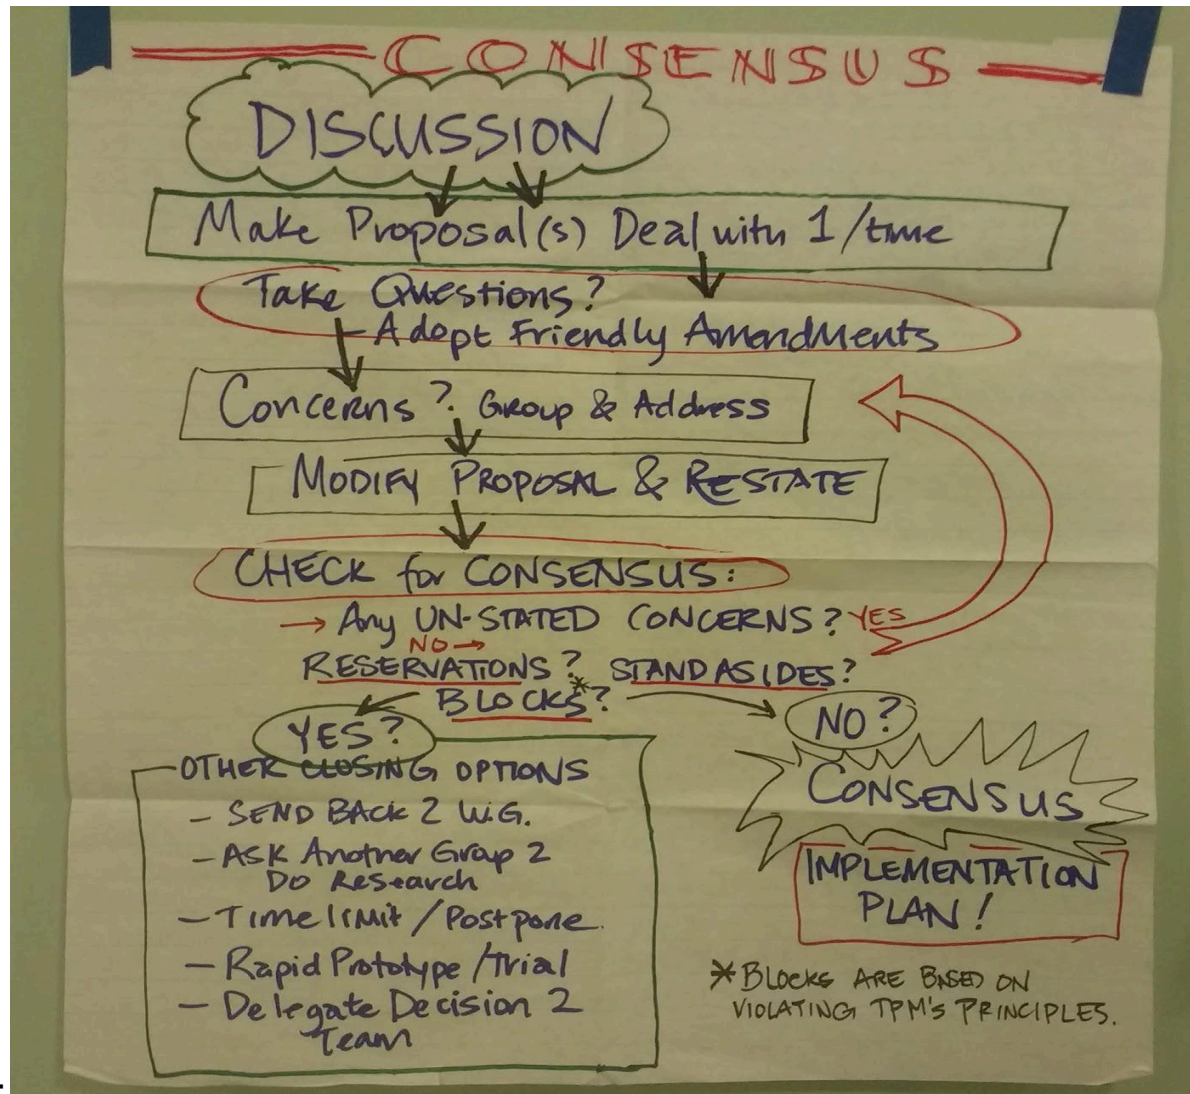 CONSENSUS
DISCUSSION
Make Proposal(s) Deal with 1/time
Take Questions?
- Adopt Friendly Amendments
Concerns? Group & Address
MODIFY PROPOSAL & RESTATE
CHECK for CONSENSUS:
→ Any UN-STATED CONCERNS? YES
NO →
RESERVATIONS? STAND ASIDES?
BLOCKS*?
YES?
NO?
OTHER CLOSING OPTIONS
- SEND BACK 2 W.G.
- ASK Another Group 2
Do Research
- Time limit / Postpone.
- Rapid Prototype/Trial
- Delegate Decision 2
Team
CONSENSUS
IMPLEMENTATION
PLAN!
* BLOCKS ARE BASED ON
VIOLATING TPM'S PRINCIPLES.